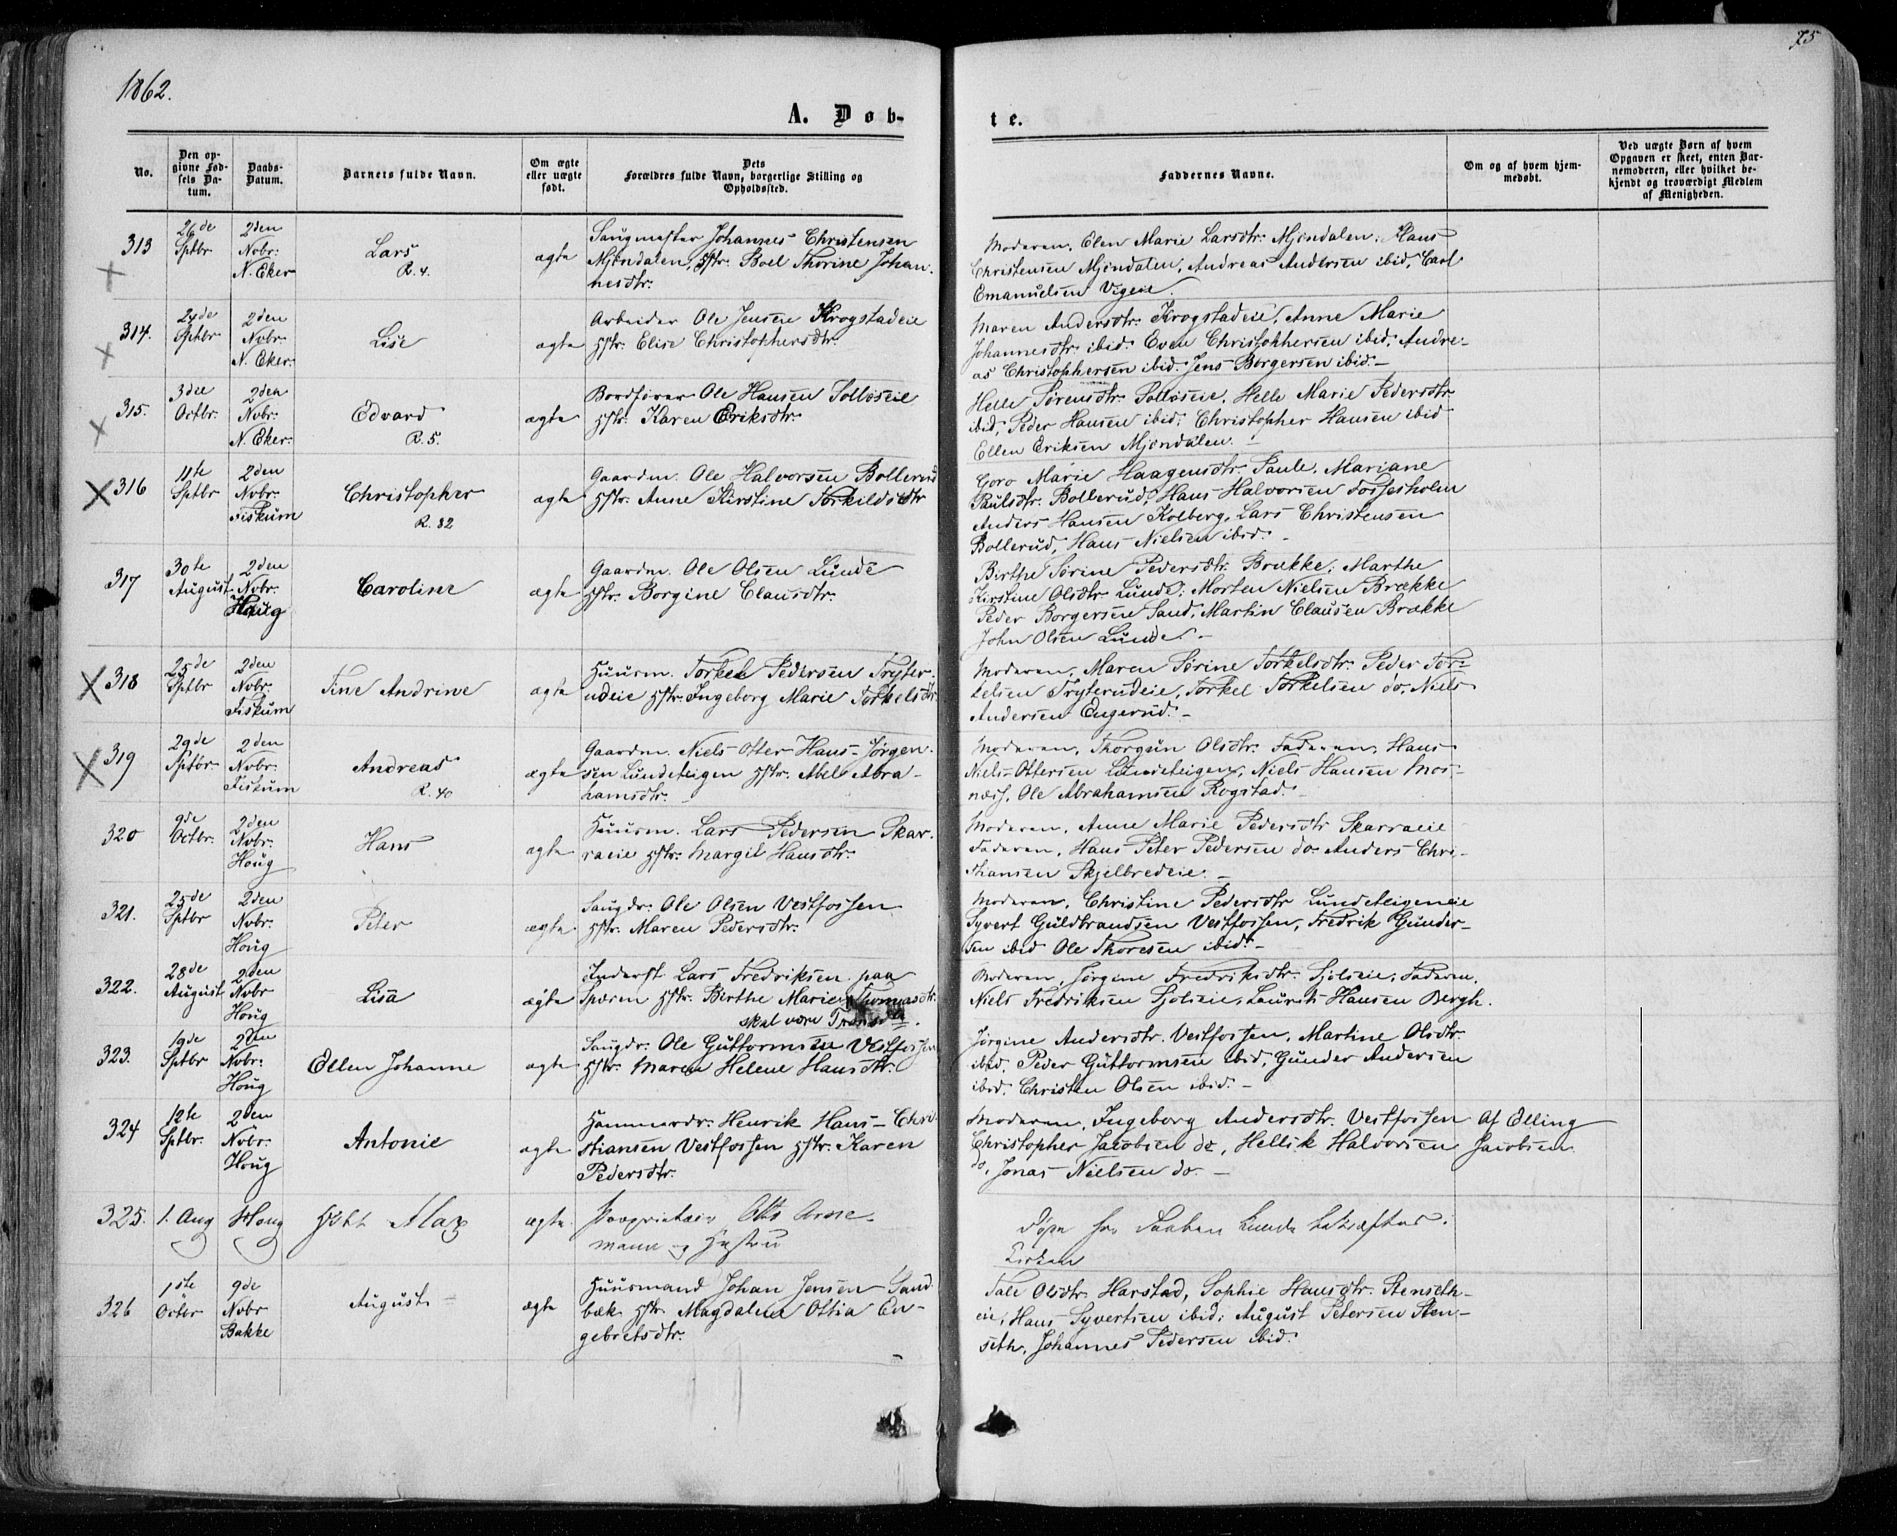 1862.
75
A. Døb-
te.
No.
Den opgivne Fødsels Datum.
Daabs-Datum.
Barnets fulde Navn.
Om ægte eller uægte født.
Dets Forældres fulde Navn, borgerlige Stilling og Opholdssted.
Faddernes Navne.
Om og af hvem hjemmedøbt.
Ved uægte Børn af hvem Opgaven er skeet, enten Barnemoderen, eller hvilket bekjendt og troværdigt Medlem af Menigheden.
313 26de Sptbr 2den Nvbr. N. Eker Lars R. 4. ægte
Saugmester Johannes Christensen
Mjøndalen, Hstr. Boel Thorine Johan-
nesdtr.
Moderen, Elen Marie Larsdtr. Mjøndalen, Hans
Christensen Mjøndalen, Andreas Andersen ibid, Carl
Emanuelsen Vegeie.
314. 24de Sptbr 2den Nvbr. N. Eker. Lise ægte
Arbeider Ole Jensen Krogstadeie
Hstr. Elise Christophersdtr.
Maren Andersdtr. Krogstadeie, Anne Marie
Johannesdtr. ibid. Even Christophersen ibid, Andre-
as Christophersen ibid. Jens Borgersen ibid.
315. 3die Octbr. 2den Nvbr. N. Eker. Edvard R. 5. ægte
Bordfører Ole Hansen Solløseie
Hstr. Karen Eriksdtr.
Helle Sørensdtr. Solløseie, Helle Marie Pedersdtr
ibid, Peder Hansen ibid, Christopher Hansen ibid
Ellen Eriksen Mjøndalen.
316 11te Sptbr 2den Nvbr. Fiskum Christopher R. 82 ægte
Gaardm. Ole Halvorsen Bollerud
Hstr. Anne Kirstine Torkildsdtr
Goro Marie Haagensdtr. Saule, Mariane
Paulsdtr. Bollerud, Hans Halvorsen Fossesholm
Anders Hansen Kolberg, Lars Christensen
Bollerud, Hans Nielsen ibid.
317 30te August 2den Nvbr. Houg Caroline ægte
Gaardm. Ole Olsen Lunde
Hstr. Borgine Clausdtr.
Birthe Sørine Pedersdtr. Brække, Marthe
Kirstine Olsdtr. Lunde, Morten Nielsen Brække
Peder Borgersen Sand, Martin Clausen Brække
John Olsen Lunde
318 25de Sptbr 2den Nvbr. Fiskum Tine Andrine ægte
Huusm. Torkel Pedersen Tryter-
udeie Hstr. Ingeborg Marie Torkelsdtr.
Moderen, Maren Sørine Torkelsdtr. Peder Tor-
kelsen Tryterudeie, Torkel Torkelsen do, Niels
Andersen Engerud.
319 29de Sptbr. 2den Nvbr. Fiskum Andreas R. 40 ægte
Gaardm. Niels Otter Hans-Jørgen-
sen Lundeteigen Hstr. Abel Abra-
hamsdtr.
Moderen, Thorgun Olsdtr. Faderen, Hans
Niels-Ottersen Lundeteigen, Niels Hansen Mos-
næss, Ole Abrahamsen Rogstad.
320 9de Octbr. 2den Nvbr. Houg Hans ægte
Huusm. Lars Pedersen Skar-
raeie Hstr. Margit Hansdtr.
Moderen, Anne Marie Pedersdtr Skarraeie
Faderen, Hans Peter Pedersen do. Anders Chri-
sthansen Skjelbredeie.
321. 25de Sptbr 2den Nvbr. Houg Peter ægte
Saugdr. Ole Olsen Vestfossen
Hstr. Maren Pedersdtr.
Moderen, Christine Pedersdtr Lundeteigeneie
Syvert Guldbrandsen Vestfossen, Fredrik Gunder-
sen ibid Ole Thoresen ibid.
322. 28de August 2den Nvbr Houg Lisa ægte
Inderst Lars Fredriksen paa
Spæren Hstr. Birthe Marie Thomasdtr.
skal være
Moderen, Jørgine Fredriksdtr. Fjølseie, Faderen.
Niels Fredriksen Fjølseie, Laurits Hansen Bergh.
323. 19de Sptbr 2den Nvbr. Houg Ellen Johanne ægte
Saugdr. Ole Guttormsen Vestfossen
Hstr. Maren Helene Hansdtr.
Jørgine Andersdtr. Vestfossen, Martine Olsdtr.
ibid, Peder Guttormsen ibid, Gunder Andersen
ibid. Christen Olsen ibid.
324 12te Sptbr. 2den Nvbr. Houg Antonie ægte
Hammerdr. Henrik Hans-Chri-
stiansen Vestfossen Hstr. Karen
Pedersdtr.
Moderen, Ingeborg Andersdtr. Vestfossen
Christopher Jacobsen do, Hellik Halvorsen
do, Jonas Nielsen do.
Af Elling
Jacobsen
325. 1. Aug Houg Max ægte.
Proprietair Otto Arne-
mann og Hustru
Døpt
Kirken
326 1ste Octbr 9de Nvbr Bakke August ægte
Huusmand Johan Jensen Sand-
bæk Hstr. Magdalene Ottia En-
gebretsdtr.
Tale Olsdtr. Harstad, Sophie Hansdtr. Stenseth-
eie, Hans Syvertsen ibid, August Petersen Sten-
seth, Johannes Pedersen ibid.